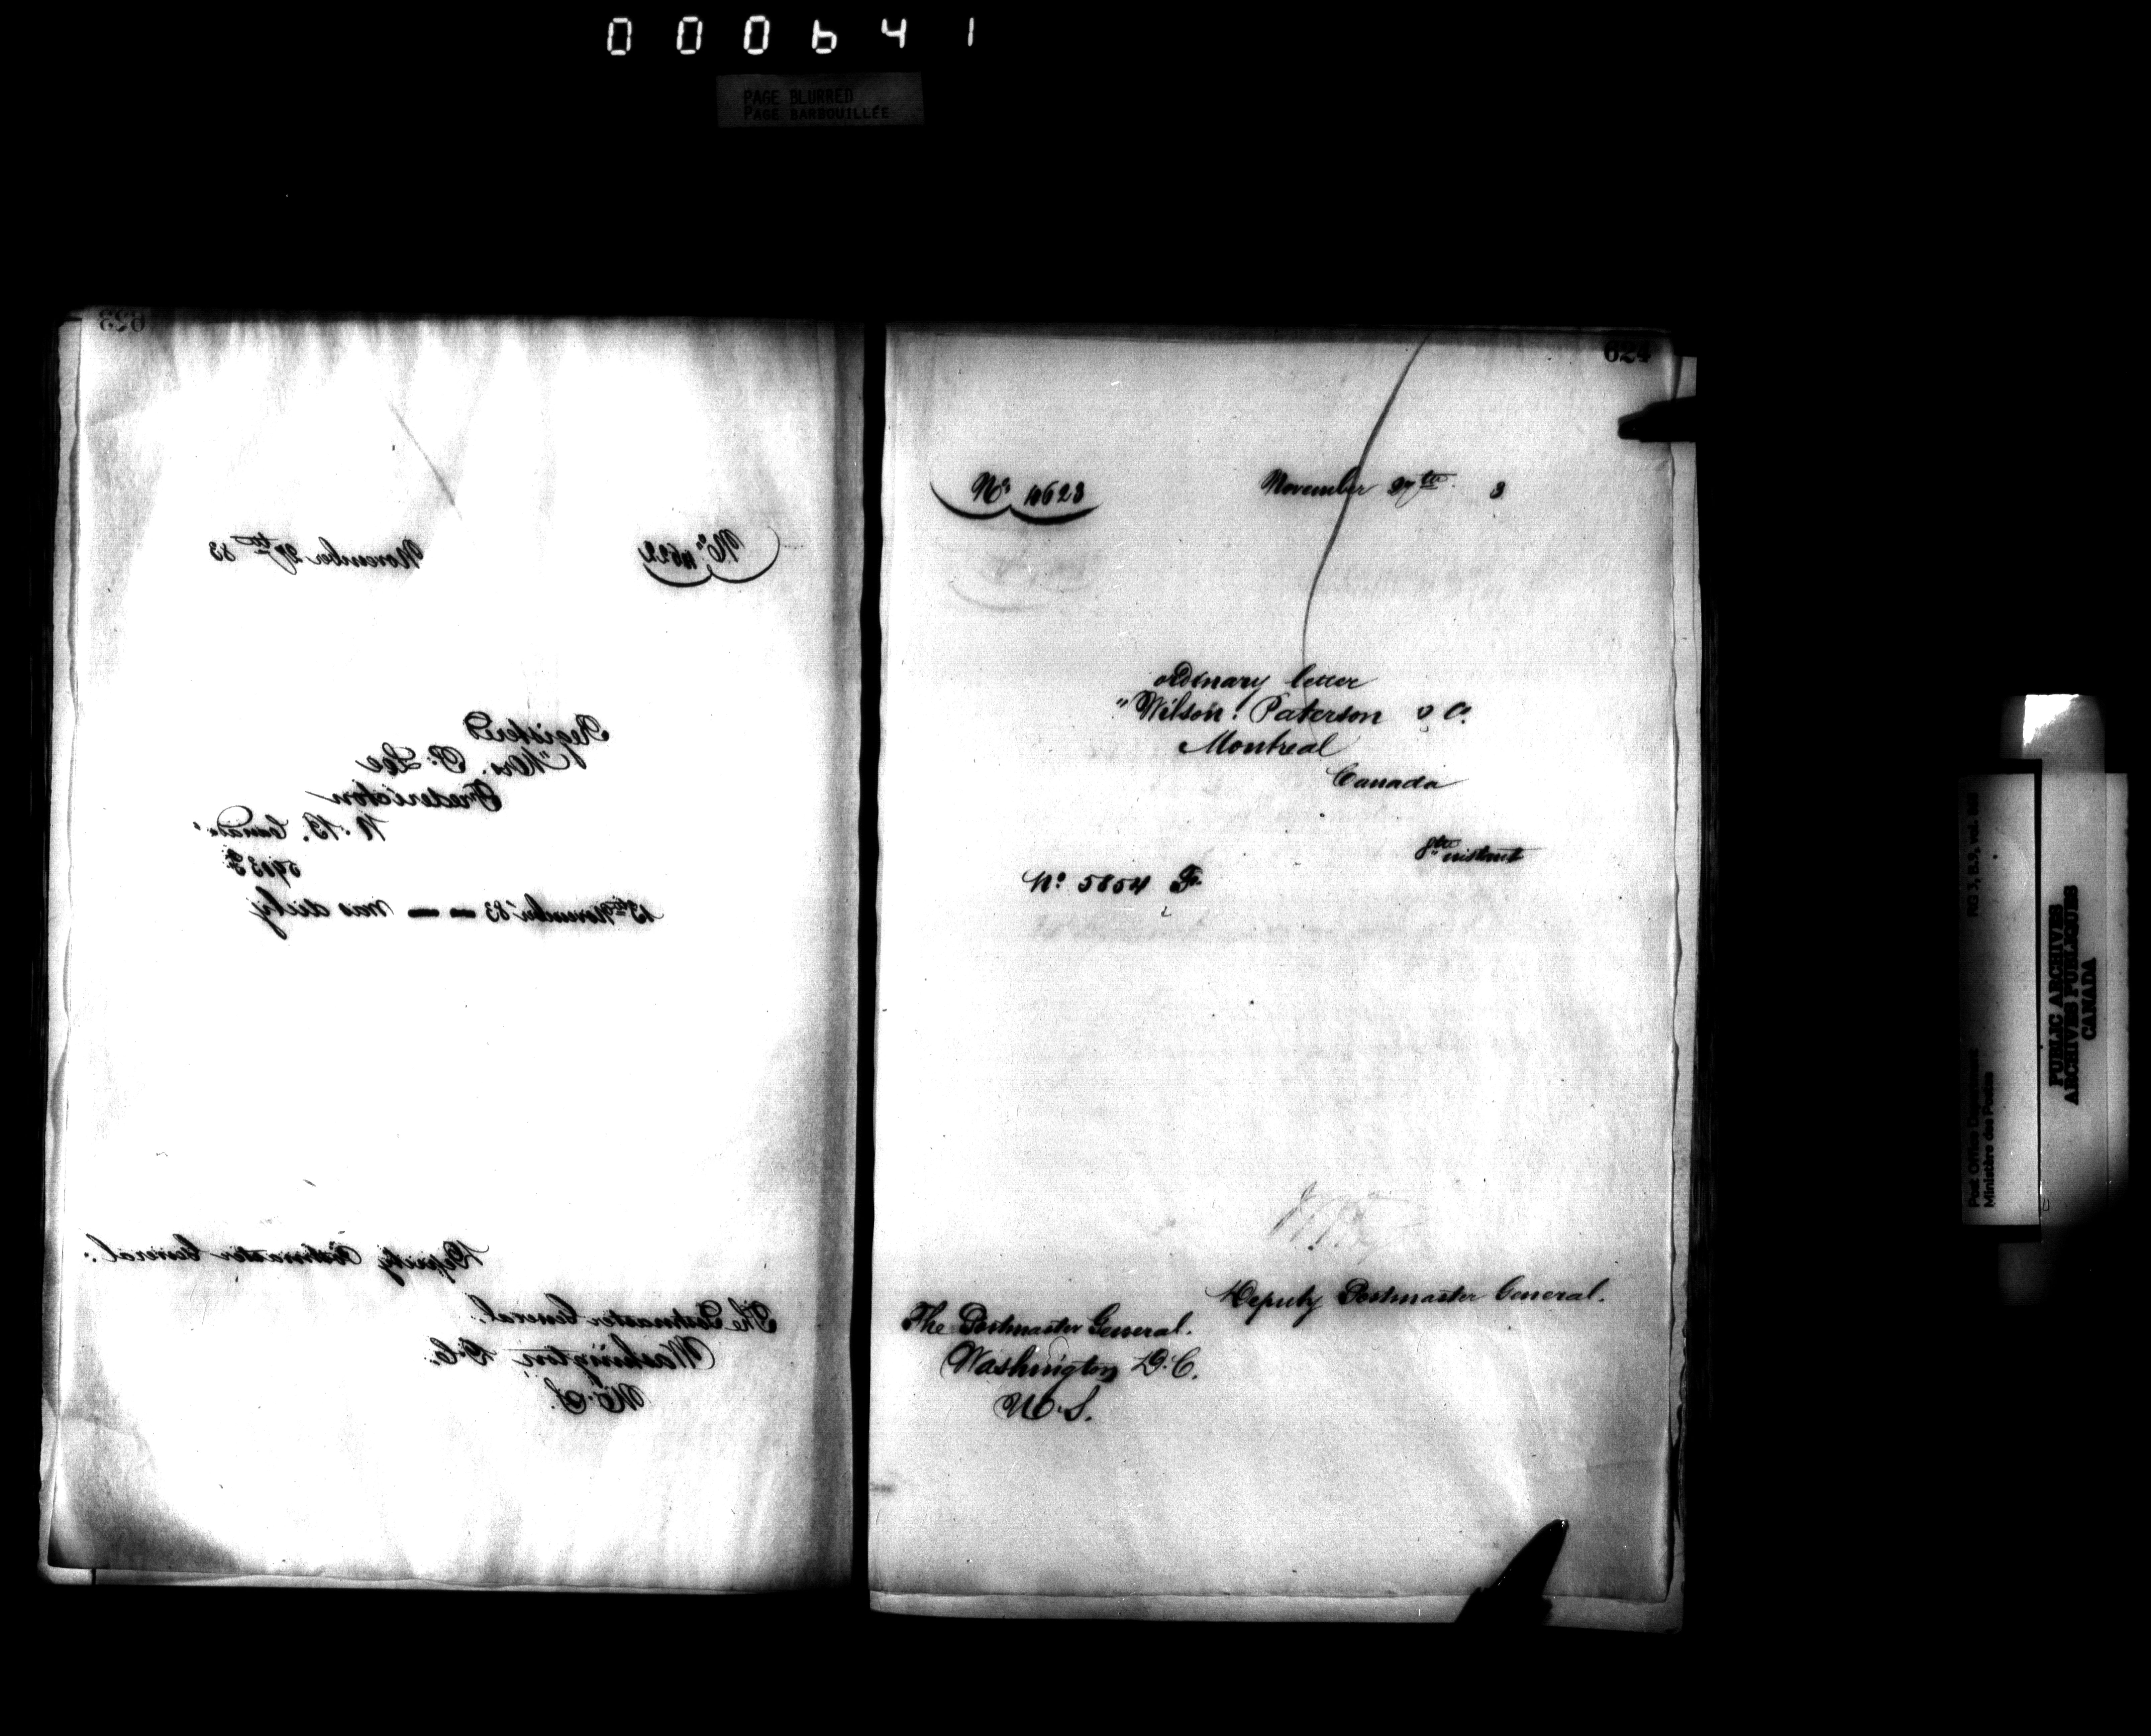 000641
PAGE BLURRED
PAGE BARBOUILLÉE
623
No. 11622
November 27th 83
Registered
"Mrs. P. Lee
Fredericton
N. B. Canada"
5903 F.
13th November '83 — — was duly
Deputy Postmaster General.
The Postmaster General.
Washington D.C.
U.S.
624
No. 11623
November 27th 3
ordinary letter
"Wilson. Paterson & Co.
Montreal
Canada
8th instant
No. 5854 F.
Deputy Postmaster General.
The Postmaster General.
Washington D.C.
U.S.
RG 3, B.9, vol.
Post Office Department
Ministère des Postes
PUBLIC ARCHIVES
ARCHIVES PUBLIQUES
CANADA